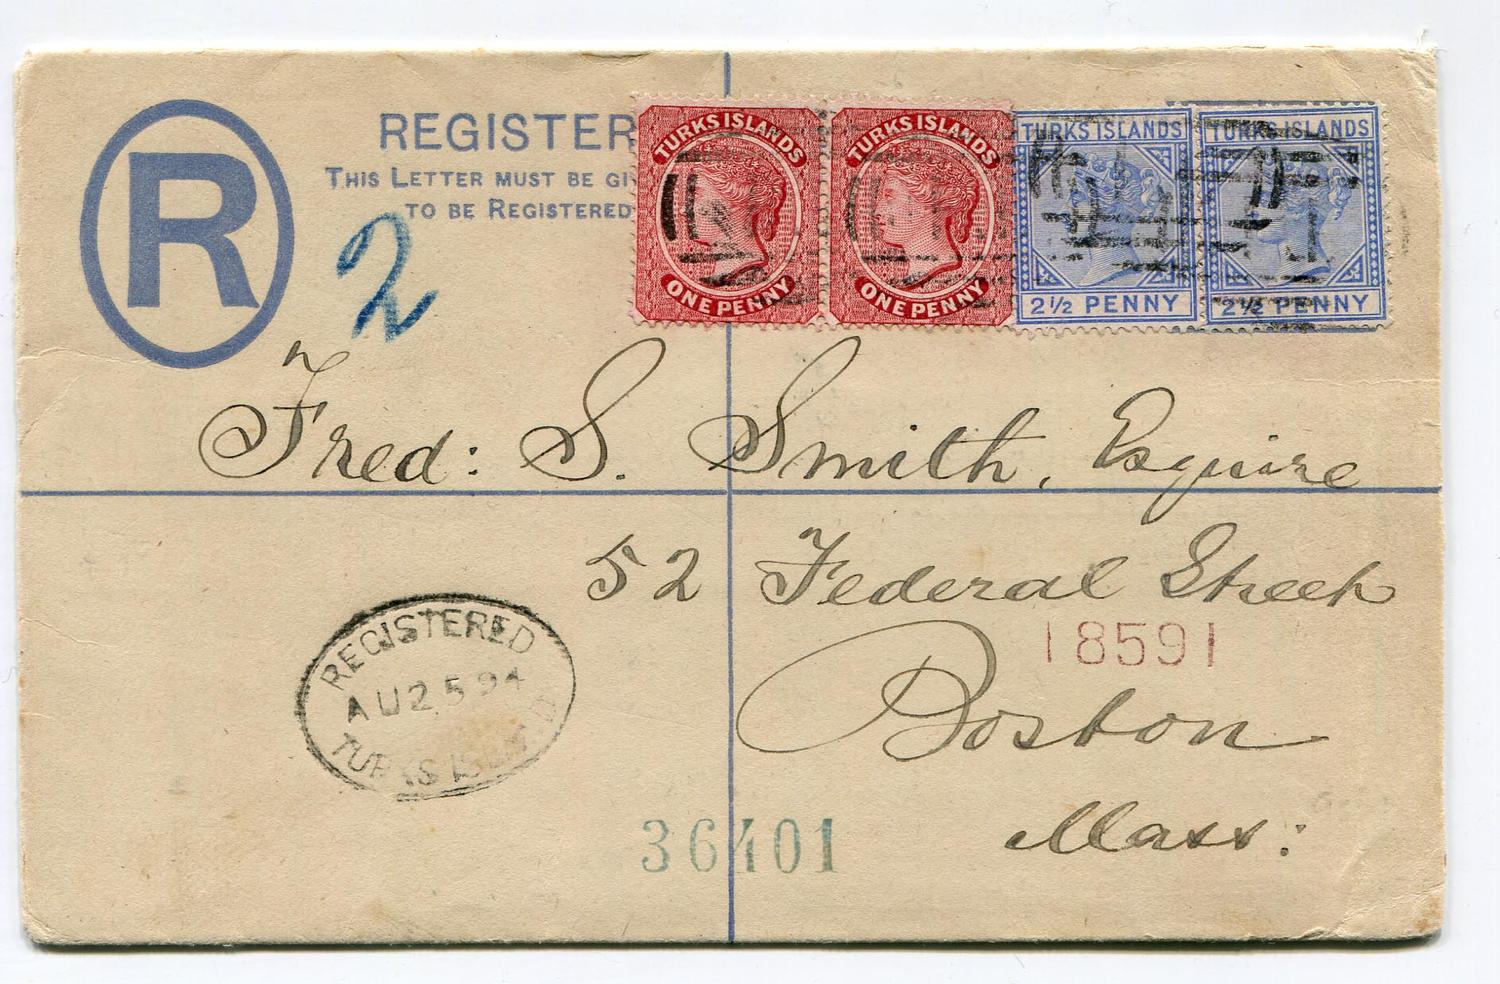 R
REGISTER
THIS LETTER MUST BE GI
TO BE REGISTERED
2
TURKS ISLANDS
ONE PENNY
TURKS ISLANDS
ONE PENNY
TURKS ISLANDS
2½ PENNY
TURKS ISLANDS
2½ PENNY
Fred: S. Smith, Esquire
52 Federal Street
18591
Boston
Mass:
REGISTERED
AU 25 94
TURKS ISLAND
36401